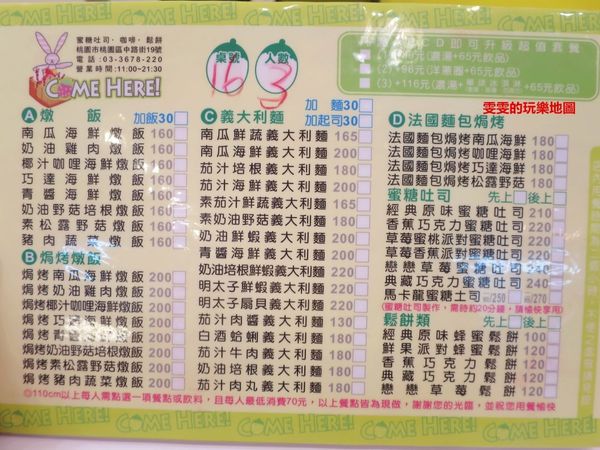 蜜糖吐司‧咖啡‧鬆餅
桃園市桃園區中路街19號
電話:03-3678-220
營業時間:11:00~21:30
COME HERE!
桌號 16
人數 3
CD即可升級超值套餐
+65元飲品)
(2)+96元(洋蔥圈+65元飲品)
(3)+116元(濃湯+
+65元飲品)
雯雯的玩樂地圖
A 燉飯 加飯30
南瓜海鮮燉飯 160
奶油雞肉燉飯 160
椰汁咖哩海鮮燉飯 160
巧達海鮮燉飯 160
青醬海鮮燉飯 160
奶油野菇培根燉飯 160
素松露野菇燉飯 160
豬肉蔬菜燉飯 160
B 焗烤燉飯
焗烤南瓜海鮮燉飯 200
焗烤奶油雞肉燉飯 200
焗烤椰汁咖哩海鮮燉飯 200
焗烤巧達海鮮燉飯 200
焗烤青醬海鮮燉飯 200
焗烤奶油野菇培根燉飯 200
焗烤素松露野菇燉飯 200
焗烤豬肉蔬菜燉飯 200
C 義大利麵 加麵30
加起司30
南瓜鮮蔬義大利麵 165
南瓜海鮮義大利麵 200
茄汁培根義大利麵 180
茄汁海鮮義大利麵 200
素茄汁鮮蔬義大利麵 165
素奶油野菇義大利麵 180
奶油鮮蝦義大利麵 200
青醬海鮮義大利麵 200
奶油培根鮮蝦義大利麵 220
明太子鮮蝦義大利麵 220
明太子扇貝義大利麵 220
茄汁肉醬義大利麵 130
白酒蛤蜊義大利麵 200
茄汁牛肉義大利麵 200
茄汁肉丸義大利麵 200
D 法國麵包焗烤
法國麵包焗烤南瓜海鮮 180
法國麵包焗烤咖哩海鮮 180
法國麵包焗烤巧達海鮮 180
法國麵包焗烤松露野菇 180
蜜糖吐司 先上 後上
經典原味蜜糖吐司 210
香蕉巧克力蜜糖吐司 220
草莓蜜桃派對蜜糖吐司 240
草莓香蕉派對蜜糖吐司 240
戀戀草莓蜜糖吐司 240
典藏巧克力蜜糖吐司 240
馬卡龍蜜糖土司 /250 /270
(蜜糖吐司製作,需時約20分鐘,請愉快享用)
鬆餅類 先上 後上
經典原味蜂蜜鬆餅 100
鮮果派對蜂蜜鬆餅 120
香蕉巧克力鬆餅 120
典藏巧克力鬆餅 120
戀戀草莓鬆餅 120
◎110cm以上每人需點選一項餐點或飲料,且每人最低消費70元,以上餐點皆為現做,謝謝您的光臨,並祝您用餐愉快
COME HERE! COME HERE! COME HERE! COME HERE! COME HERE!